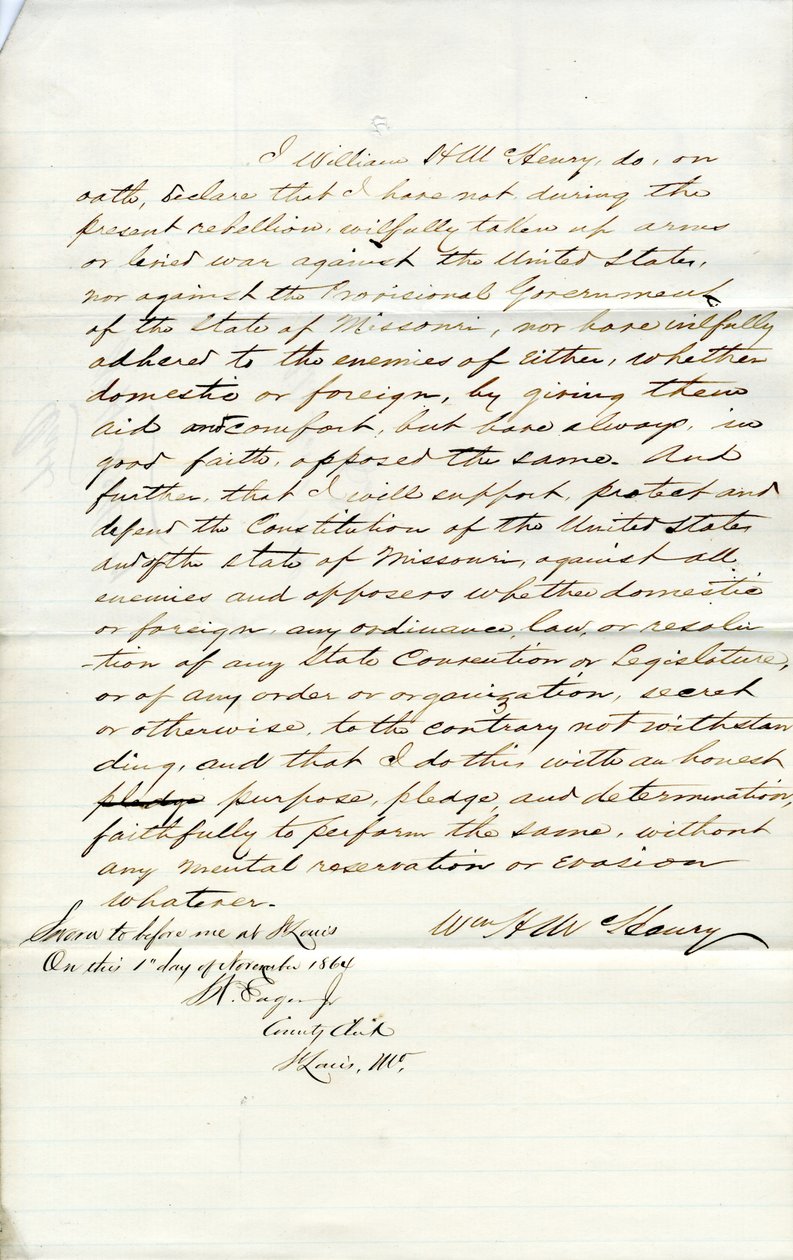 I William H McHenry, do, on
oath, declare that I have not, during the
present rebellion, wilfully taken up arms
or levied war against the United States,
nor against the Provisional Government
of the State of Missouri, nor have wilfully
adhered to the enemies of either, whether
domestic or foreign, by giving them
aid and comfort, but have always, in
good faith, opposed the same. And
further, that I will support, protect and
defend the Constitution of the United States
and of the State of Missouri, against all
enemies and opposers whether domestic
or foreign, any ordinance, law, or resolu
-tion of any State Convention or Legislature,
or of any order or organization, secret
or otherwise, to the contrary not withstan
ding, and that I do this with an honest
pledge purpose, pledge, and determination,
faithfully to perform the same, without
any mental reservation or evasion
whatever.
Wm H McHenry
Sworn to before me at St Louis
On this 1st day of November 1864
Eager Jr
County Clerk
St Louis, Mo.